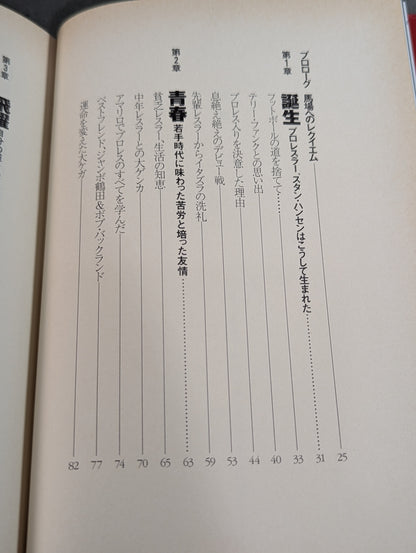 プロローグ 馬場へのレクイエム 25
第1章 誕生 プロレスラー、スタン・ハンセンはこうして生まれた 31
フットボールの道を捨てて 33
テリー・ファンクとの思い出 40
プロレス入りを決意した理由 44
息絶え絶えのデビュー戦 53
先輩レスラーからイタズラの洗礼 59
第2章 青春 若手時代に味わった苦労と培った友情 63
貧乏レスラー、生活の知恵 65
中年レスラーとの大ゲンカ 70
アマリロでプロレスのすべてを学んだ 74
ベストフレンド、ジャンボ鶴田&ボブ・バックランド 77
運命を変えた大ケガ 82
第3章 飛躍